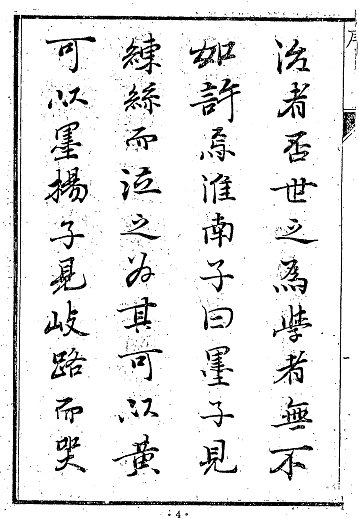 序
治者否世之為學者無不
如許焉淮南子曰墨子見
練絲而泣之為其可以黃
可以墨揚子見歧路而哭
·4·